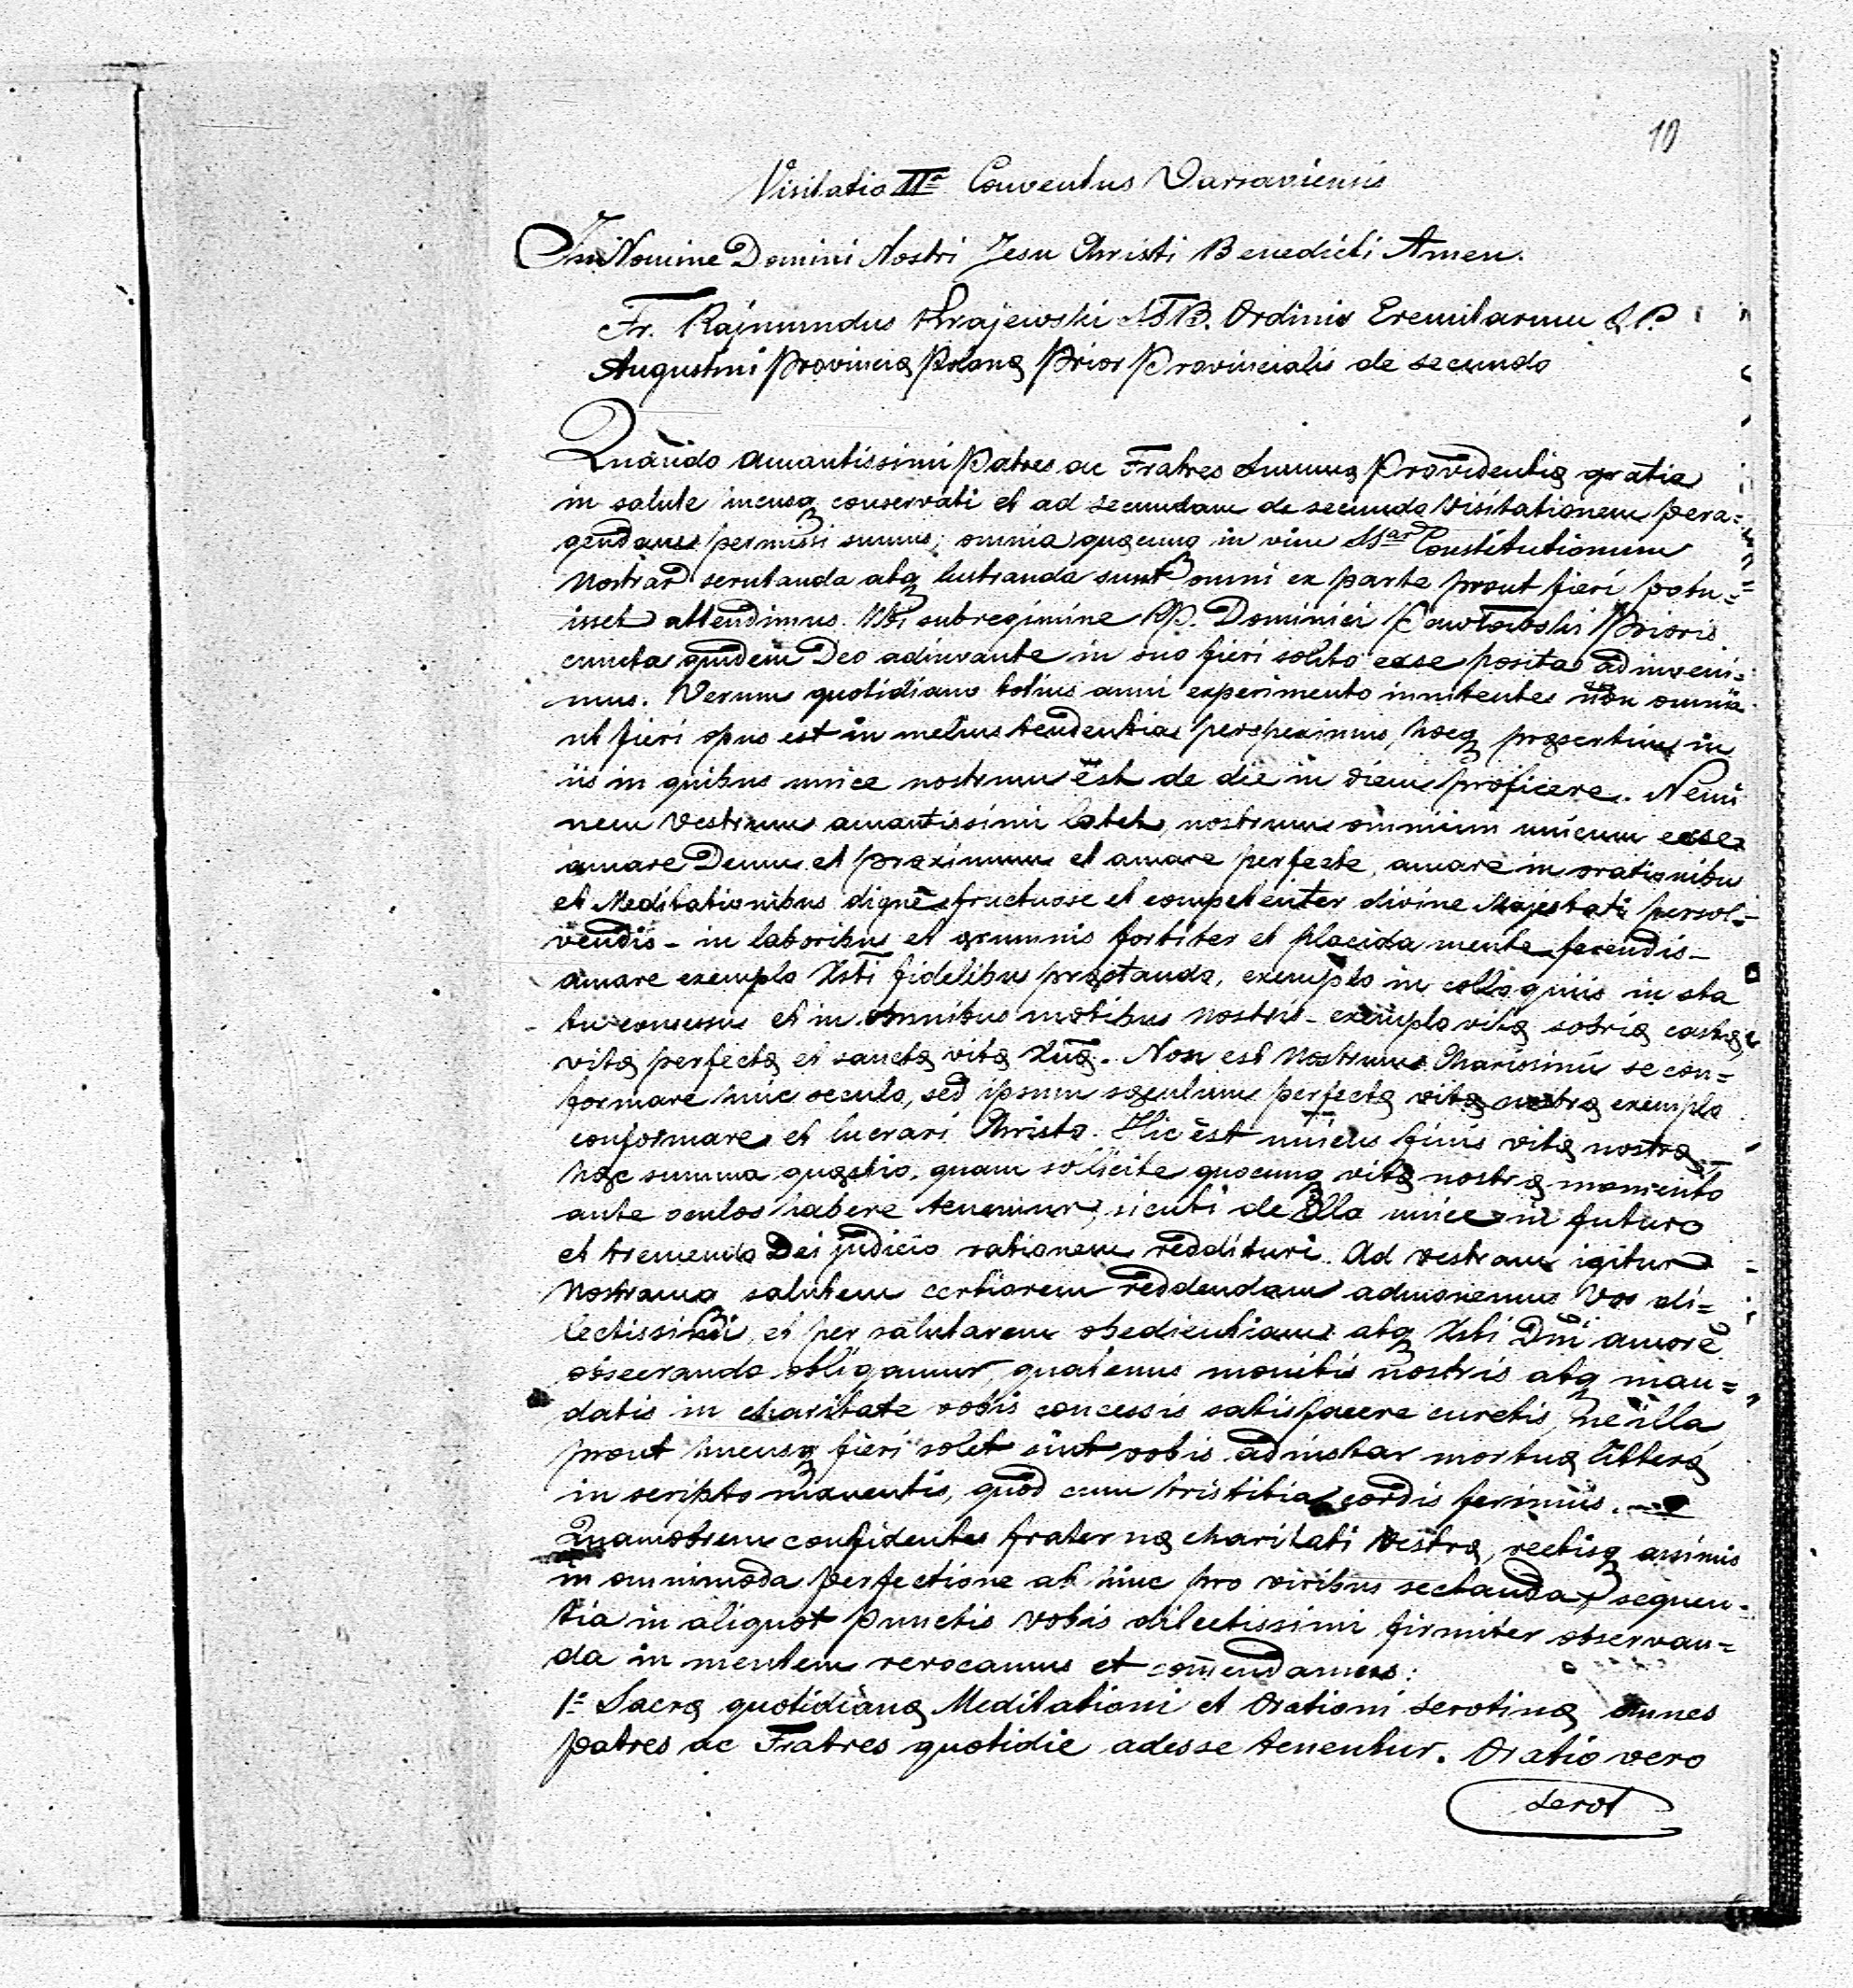 10
Visitatio IIa Conventus Varsaviensis
In Nomine Domini Nostri Jesu Christi Benedicti Amen.
Fr. Rajmundus Krajewski STB. Ordinis Eremitarum S. P.
Augustini Provinciæ Polonæ Prior Provincialis de secundo
Quando amantissimi Patres ac Fratres Summæ Providentiæ gratia
in salute incusq conservati et ad secundam de secundo Visitationem pera=
gendam permissi sumus; omnia quæcunq in vim SSar Constitutionum
Nostrar scrutanda atq lustranda sunt omni ex parte prout fieri potu=
isset attendimus. Ubi sub regimine P. Dominici Pawłowski Prioris
cuncta quidem Deo adiuvante in suo fieri solito esse posita adinveni=
mus. Verum quotidiano totius anni experimento innitentes non omnia
ut fieri opus est in melius tendentia perspeximus, hocq præsertim in
iis in quibus unice nostrum est de die in diem proficere. Nemi
nem Vestrum amantissimi latet, nostrum omnium unicum esse
amare Deum et proximum et amare perfecte, amare in orationibus
et Meditationibus digne fructuose et competenter divine Majestati persol=
vendis - in laboribus et ærumnis fortiter et placida mente ferendis -
amare exemplo Xsti fidelibus præstando, exemplo in colloquiis in sta
tu concessu et in omnibus motibus nostris - exemplo vitæ sobriæ castæ
vitæ perfectæ et sanctæ vitæ Xnæ. Non est Nostrum Charissimi se con=
formare huic seculo, sed ipsum sæculum perfectæ vitæ nostræ exemplo
conformare et lucrari Christo. Hic est unicus finis vitæ nostræ
hæc summa quæstio, quam sollicite quocunq vitæ nostræ momento
ante oculos habere tenemur, sicuti de illa unice in futuro
et tremendo Dei judicio rationem reddituri. Ad vestram igitur
Nostramq salutem certiorem reddendam admonemus Vos di=
lectissimi, et per salutarem obedientiam atq Xsti Dni amore
obsecrando obligamur, quatenus monitis nostris atq man=
datis in charitate vobis concessis satisfacere curetis, ne illa
prout hucusq fieri solet sint vobis ad instar mortuæ litteræ
in scripto manentis, quod cum tristitia cordis ferimus.
Quamobrem confidentes fraternæ charitati Vestræ, rectisq animis
in omnimoda perfectione ab hinc pro viribus sectanda, sequen=
tia in aliquot punctis vobis dilectissimi firmiter observan=
da in mentem revocamus et comendamus:
1o Sacræ quotidianæ Meditationi et Orationi serotinæ omnes
patres ac Fratres quotidie adesse tenentur. Oratio vero
serot